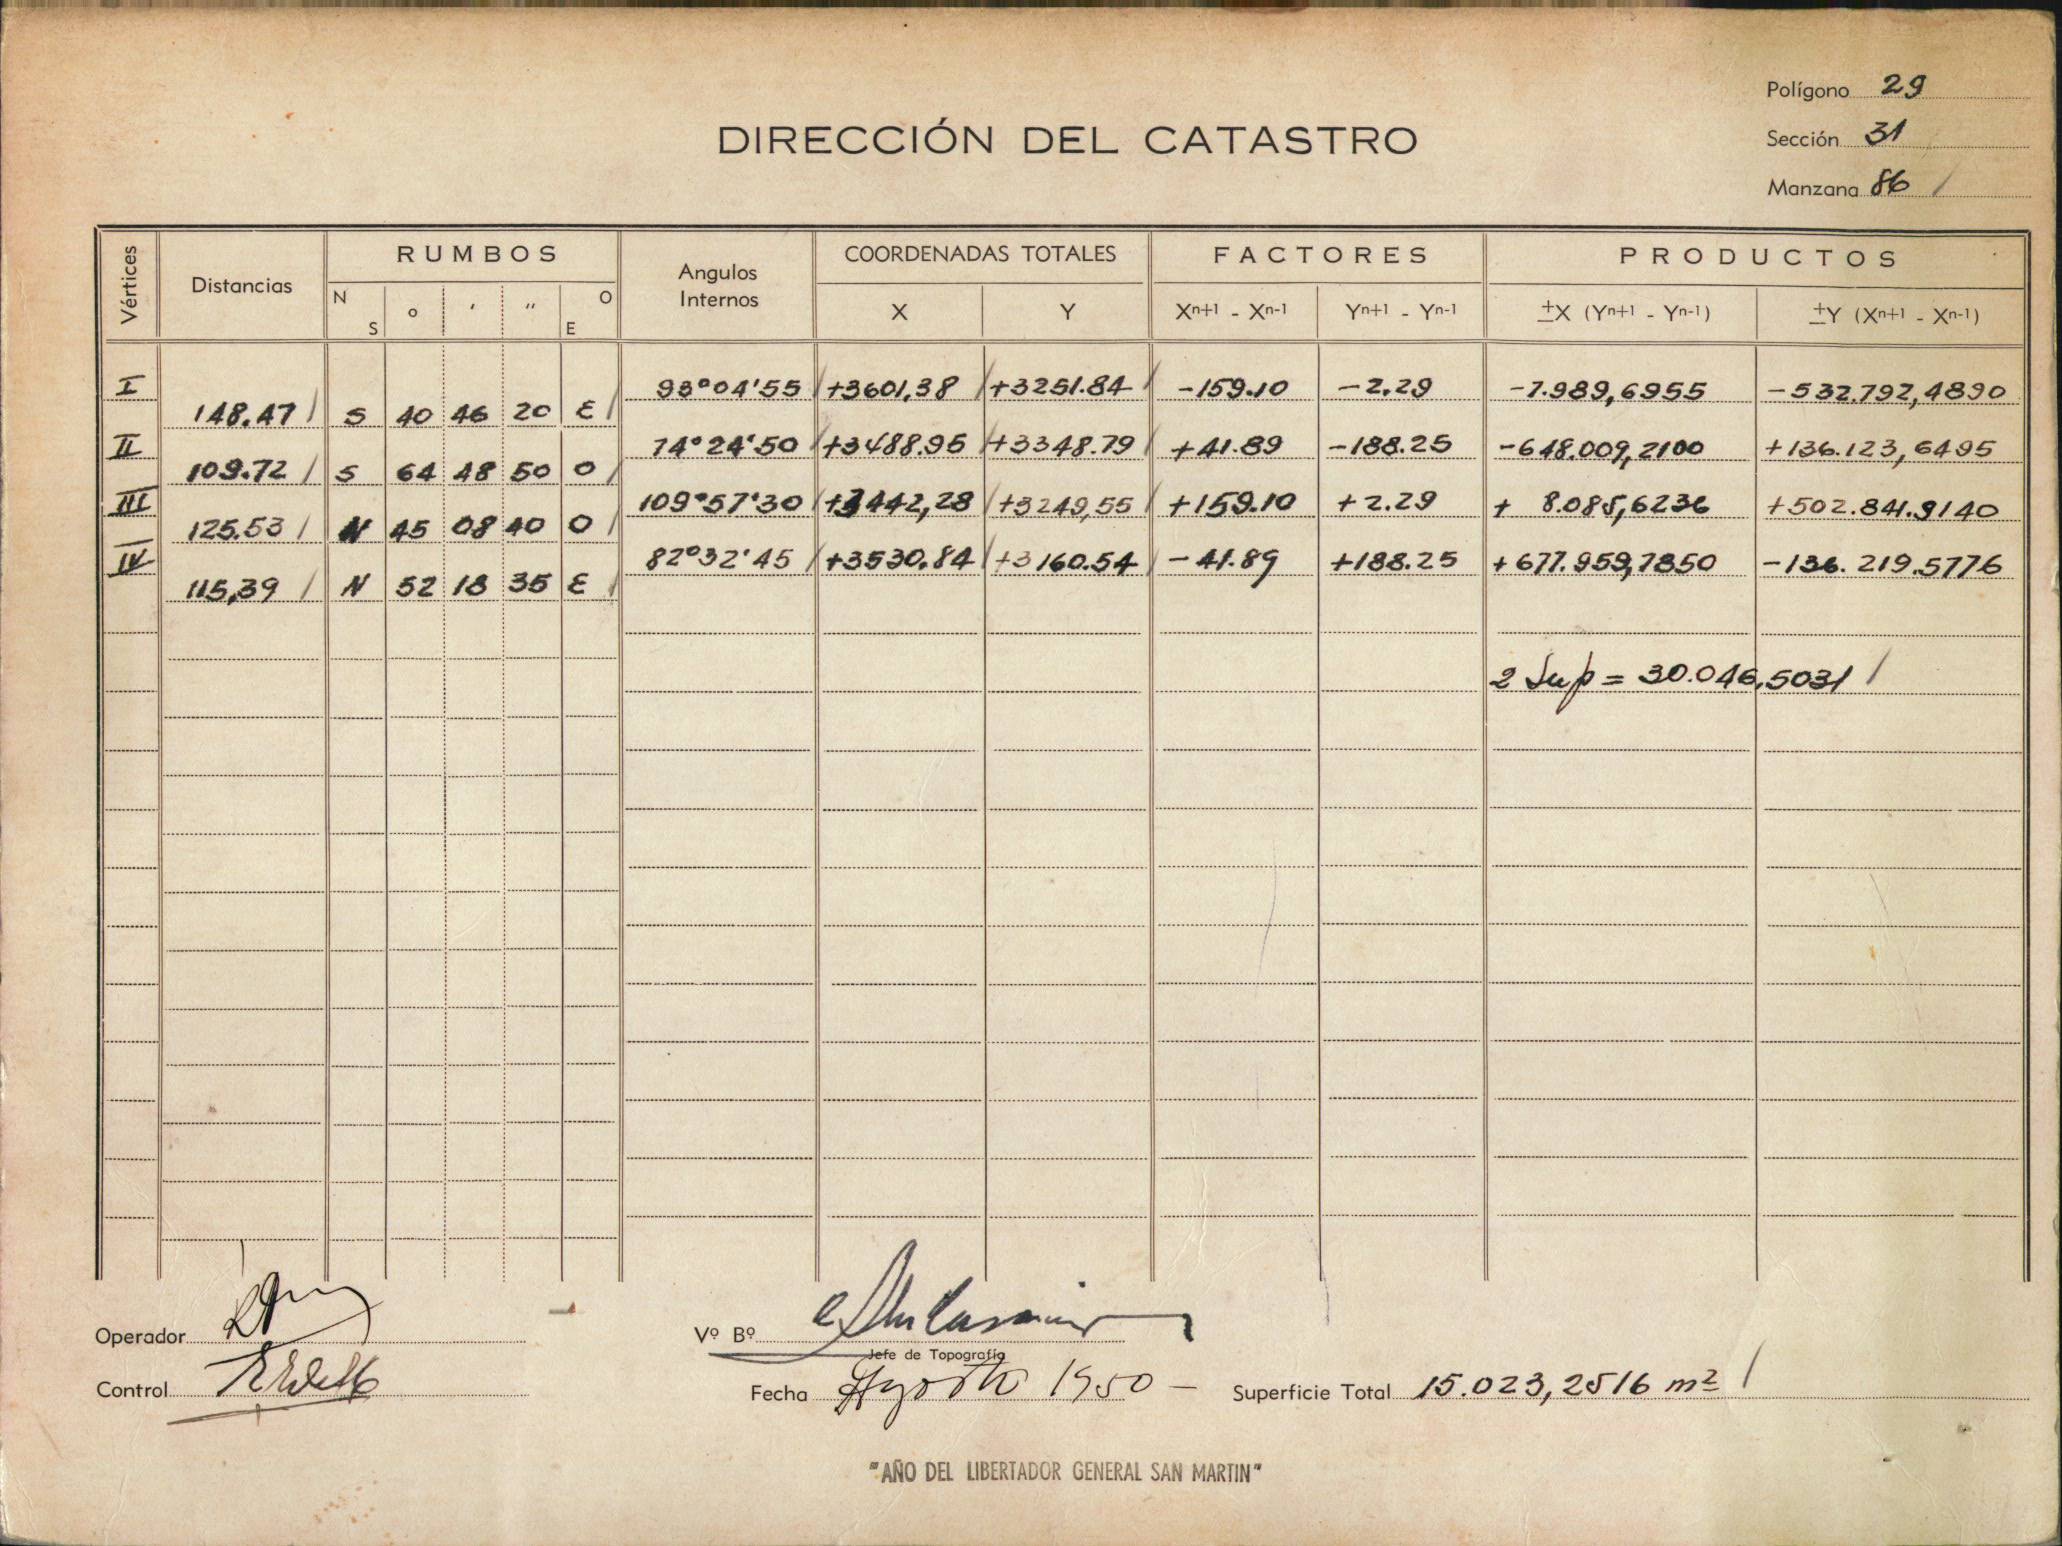 Polígono 29
Sección 31
Manzana 86 /
DIRECCIÓN DEL CATASTRO
Vértices Distancias RUMBOS Angulos Internos COORDENADAS TOTALES FACTORES PRODUCTOS
N S ° ' " O E X Y Xⁿ⁺¹ - Xⁿ⁻¹ Yⁿ⁺¹ - Yⁿ⁻¹ ±X (Yⁿ⁺¹ - Yⁿ⁻¹) ±Y (Xⁿ⁺¹ - Xⁿ⁻¹)
I 93°04'55 / +3601,38 / +3251.84 / -159.10 -2.29 -7.989,6955 -532.792,4890
148.47 / S 40 46 20 E /
II 74°24'50 / +3488.95 / +3348.79 / +41.89 -188.25 -648.009,2100 +136.123,6495
109.72 / S 64 48 50 O /
III 109°57'30 / +3442,28 / +3249,55 / +159.10 +2.29 + 8.085,6236 +502.841.9140
125.53 / N 45 08 40 O /
IV 82°32'45 / +3530.84 / +3160.54 / -41.89 +188.25 +677.959,7850 -136.219.5776
115,39 / N 52 18 35 E /
2 Sup = 30.046,5031 /
Operador
Vº Bº
Jefe de Topografía
Control
Fecha Agosto 1950 -
Superficie Total 15.023,2516 m² /
"AÑO DEL LIBERTADOR GENERAL SAN MARTIN"